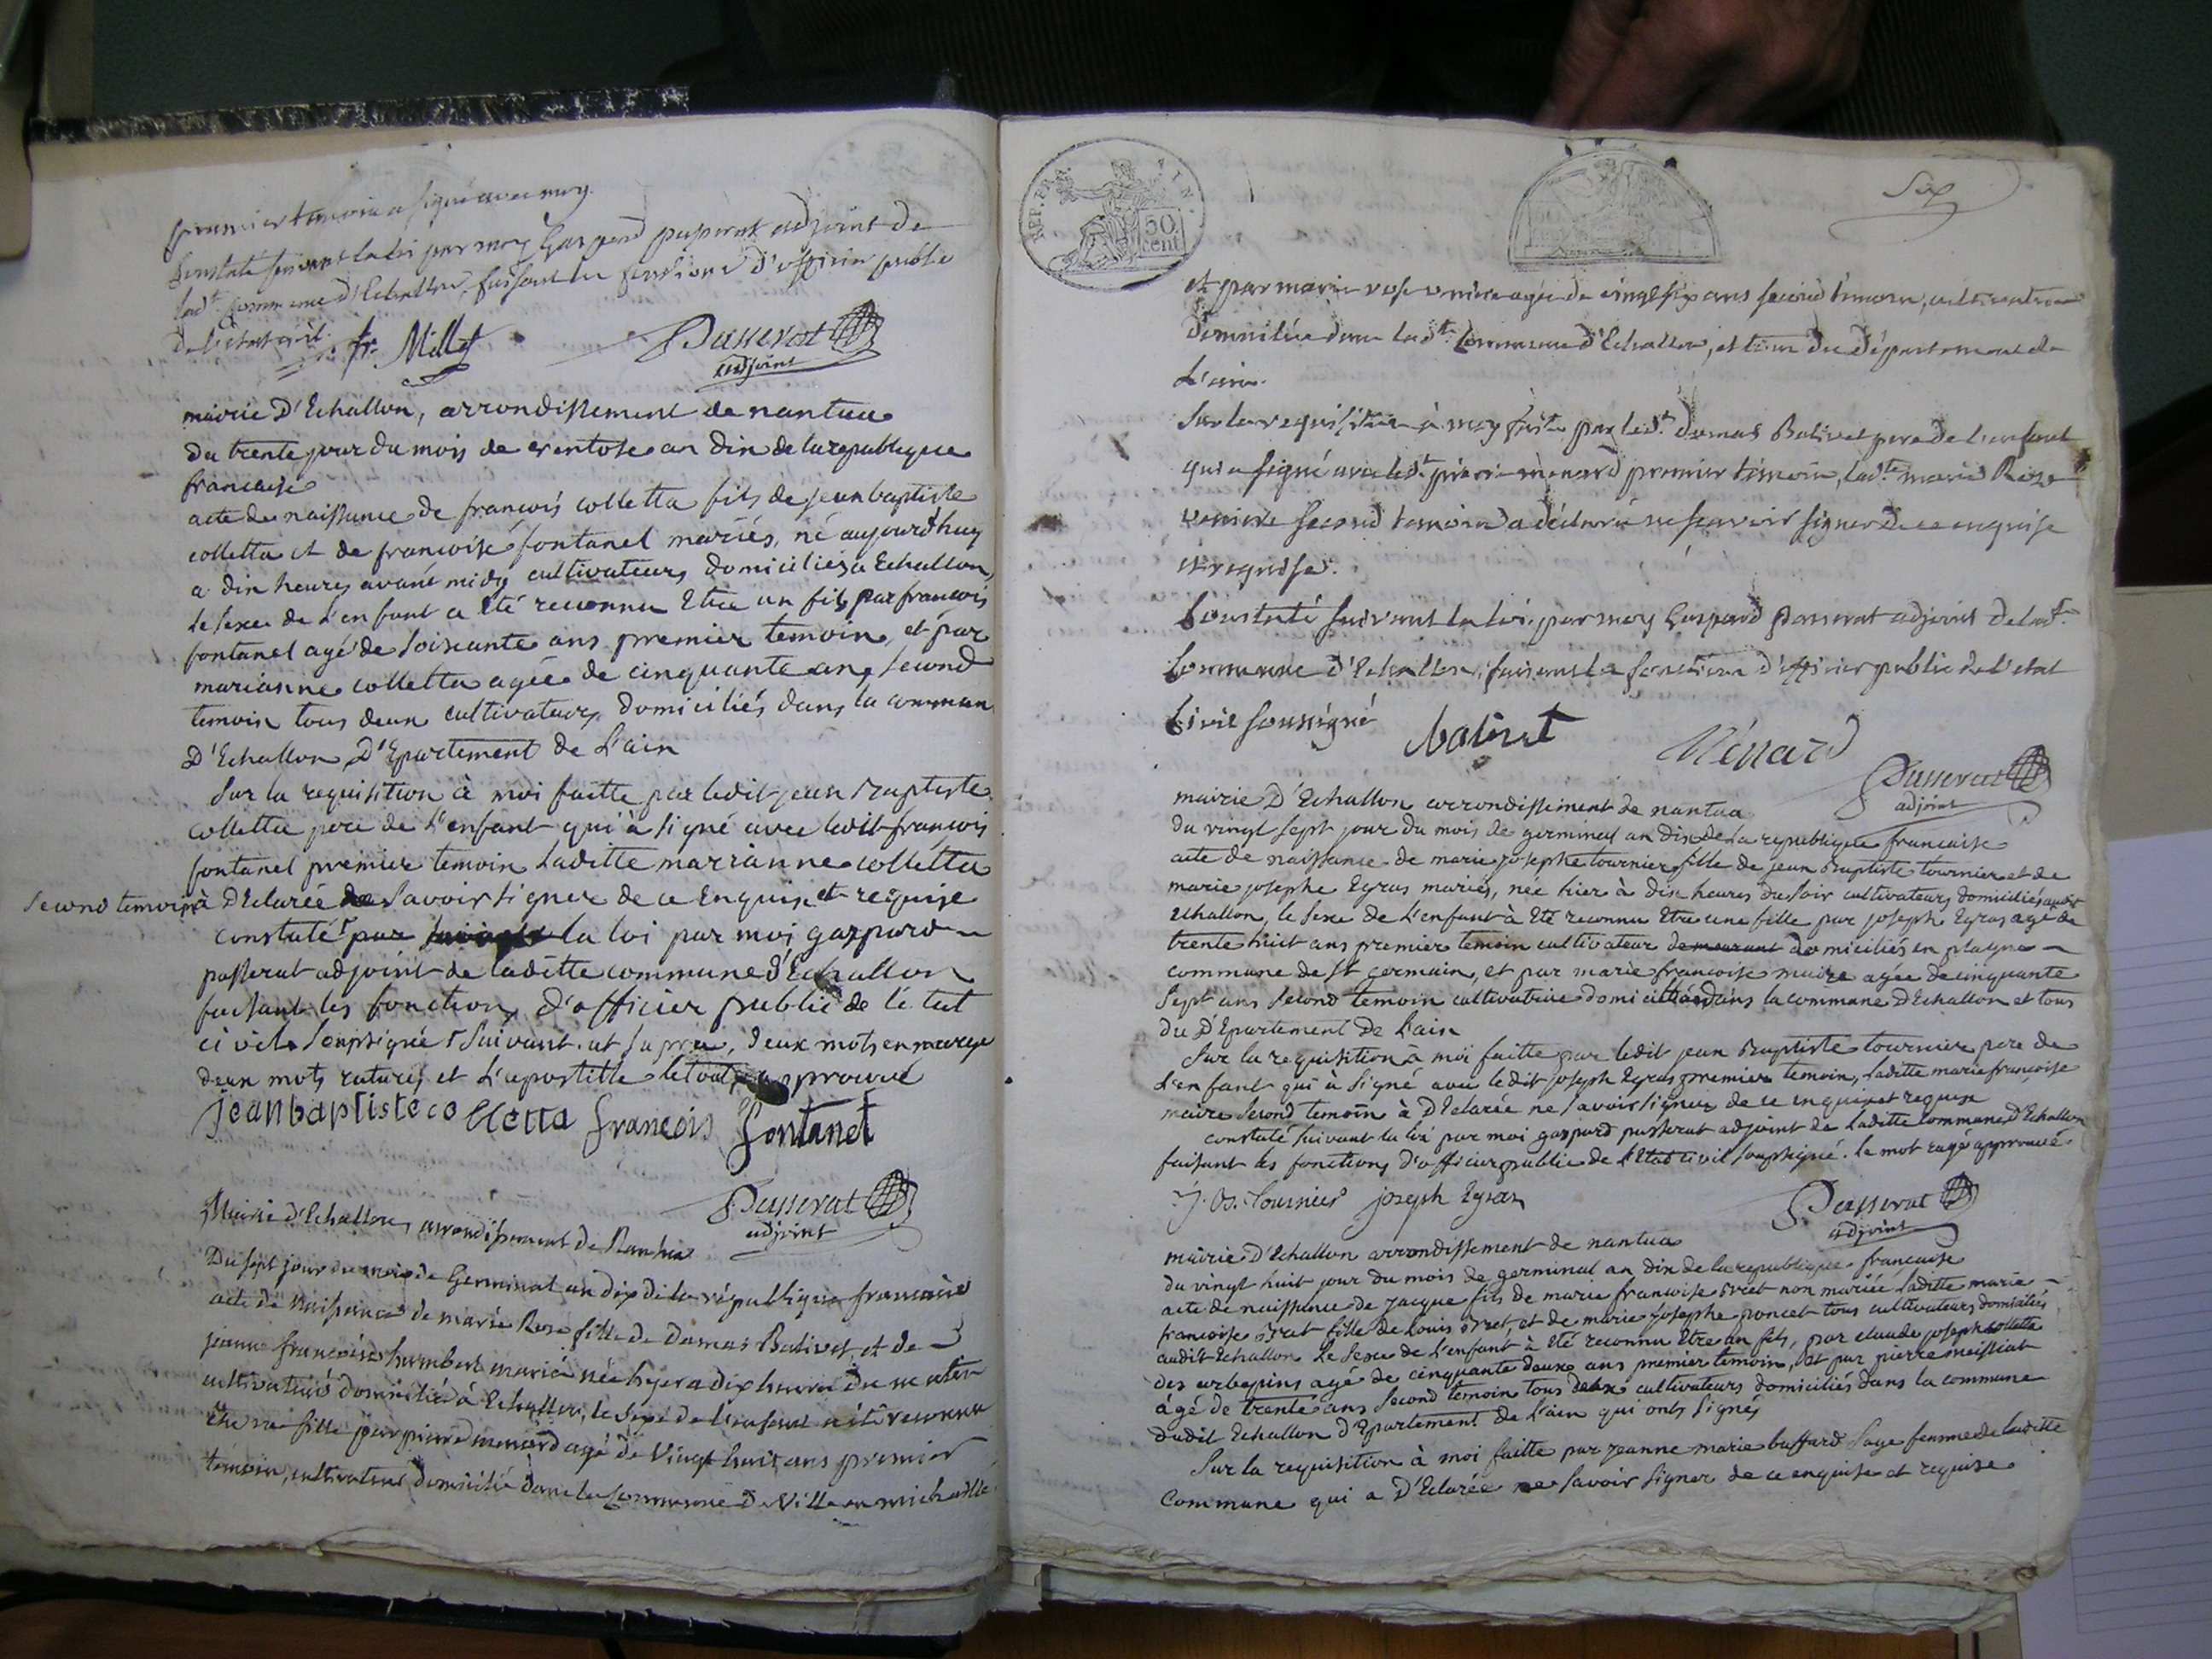 premier temoin a signé avec moy.
Constaté suivant la loi par moy Gaspard passerat adjoint de
lad.t Commune d'Echallon, faisant les fonctions d'officier public
de l'état civil.
fr. Millet
Passerat
adjoint
mairie D'Echallon, arrondissement de nantua
du trente jour du mois de ventose an dix de la republique
francaise
acte de naissance de francois colletta fils de jean baptiste
colletta et de francoise fontanel mariés, né aujourd'huy
a dix heures avant midy cultivateurs domiciliés a Echallon,
le sexe de L'enfant a Eté reconnu Etre un fils par francois
fontanel agé de soixante ans premier temoin, et par
marianne colletta agée de cinquante ans, second
temoin tous deux cultivateurs domiciliés dans la commun
D'Echallon D'Epartement de L'ain
Sur la requisition à moi faitte par ledit jean Baptiste
colletta pere de L'enfant qui à signé avec ledit francois
fontanel premier temoin Laditte marianne colletta
second temoin à D'Eclarée ne savoir signer de ce Enquise et requise
constaté par la loi par moi gaspard
passerat adjoint de laditte commune d'Echallon
faisant les fonctions d'officier public de l'é tat
ci vil soussigné suivant ut supra, deux mots en marge
deux mots raturés et L'apostille le tout approuvé
jean baptiste colletta francois fontanel
Passerat
adjoint
Mairie d'Echallon, arrondissement de Nantua
Du sept jour du mois de Germinal an dix de la république francaise
acte de Naissance de marie Rose fille de Damas Balivet et de
jeanne francoise humbert mariés née hyer a dix heures du matin
cultivateurs domiciliés à Echallon, le sexe de l'enfant a été reconnu
être une fille par pierre menard agé de vingt huit ans premier
témoin, cultivateur domicilié dans la Commune De Ville en michaille
REP. FRA.
50
cent
Six
et par marie rose veniere agée de vingt six ans second temoin, cultivatrice
domiciliée dans lad.te Commune d'Echallon, et tous du département de
L'ain.
Sur la requisition à moy faite par led.t damas Balivet pere de l'enfant
qui a signé avec led.t pierre menard premier témoin, lad.te marie Rose
veniere second temoin a déclaré ne scavoir signer de ce enquise
et requise.
Constaté suivant la loi, par moy Gaspard Passerat adjoint de lad.te
Commune d'Echallon, faisant les fonctions d'officier public de l'etat
Civil soussigné
balivet
Ménard
Passerat
adjoint
mairie D'Echallon arrondissement de nantua
du vingt sept jour du mois de germinal an dix de la republique francaise
acte de naissance de marie josephe tournier fille de jean Baptiste tournier et de
marie josephe Egras mariés, née hier à dix heures du soir cultivateurs domiciliés audit
Echallon, le sexe de L'enfant à Eté reconnu Etre une fille par joseph Egras agé de
trente huit ans premier temoin cultivateur demeurant domiciliés en plagne
commune de St germain, et par marie francoise maire agée de cinquante
sept ans second temoin cultivatrice domiciliée dans la commune D'Echallon et tous
du D'Epartement De L'ain
Sur la requisition à moi faitte par ledit jean Baptiste tournier pere de
L'enfant qui à signé avec ledit joseph Egras premier temoin, Laditte marie francoise
maire second temoin à D'Eclarée ne savoir signer de ce enquise et requise
constaté suivant la loi par moi gaspard passerat adjoint de Laditte commune D'Echallon
faisant les fonctions d'officier public de l'Etat civil soussigné. le mot rayé approuvé.
J. B. Tournier joseph Egras
Passerat
adjoint
mairie D'Echallon arrondissement de nantua
du vingt huit jour du mois de germinal an dix de la republique francaise
acte de naissance de jacque fils de marie francoise Bret non mariée Laditte marie
francoise Bret fille de Louis Bret et de marie josephe poncet tous cultivateurs domiciliés
audit Echallon Le sexe de L'enfant à Eté reconnu Etre un fils, par claude joseph colletta
des arbepins agé de cinquante deux ans premier temoin, Et par pierre meissiat
àgé de trente ans second temoin tous deux cultivateurs domiciliés dans la commune
dudit Echallon d'Epartement de L'ain qui onts signés
Sur la requisition à moi faitte par jeanne marie buffard sage femme de laditte
Commune qui a D'Eclarée ne savoir signer de ce enquise et requise